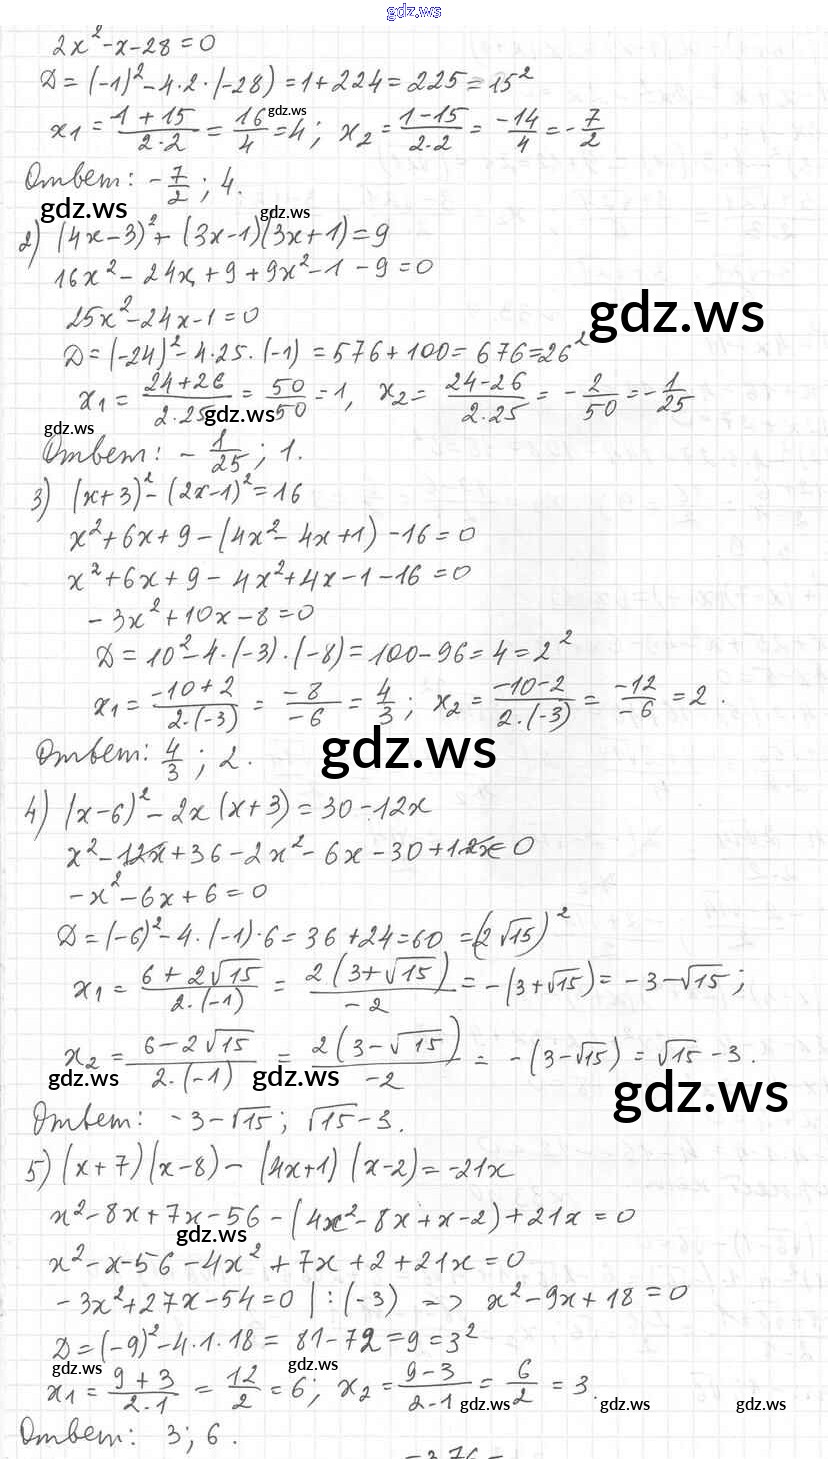 gdz.ws
2x² - x - 28 = 0
D = (-1)² - 4·2·(-28) = 1 + 224 = 225 = 15²
x₁ = (1 + 15)/(2·2) = 16/4 = 4; x₂ = (1 - 15)/(2·2) = -14/4 = -7/2
gdz.ws
Ответ: -7/2; 4.
gdz.ws gdz.ws
2) (4x - 3)² + (3x - 1)(3x + 1) = 9
16x² - 24x + 9 + 9x² - 1 - 9 = 0
25x² - 24x - 1 = 0
gdz.ws
D = (-24)² - 4·25·(-1) = 576 + 100 = 676 = 26²
x₁ = (24 + 26)/(2·25) = 50/50 = 1, x₂ = (24 - 26)/(2·25) = -2/50 = -1/25
gdz.ws gdz.ws
Ответ: -1/25; 1.
3) (x + 3)² - (2x - 1)² = 16
x² + 6x + 9 - (4x² - 4x + 1) - 16 = 0
x² + 6x + 9 - 4x² + 4x - 1 - 16 = 0
-3x² + 10x - 8 = 0
D = 10² - 4·(-3)·(-8) = 100 - 96 = 4 = 2²
x₁ = (-10 + 2)/(2·(-3)) = -8/-6 = 4/3; x₂ = (-10 - 2)/(2·(-3)) = -12/-6 = 2.
Ответ: 4/3; 2.
gdz.ws
4) (x - 6)² - 2x(x + 3) = 30 - 12x
x² - 12x + 36 - 2x² - 6x - 30 + 12x = 0
-x² - 6x + 6 = 0
D = (-6)² - 4·(-1)·6 = 36 + 24 = 60 = (2√15)²
x₁ = (6 + 2√15)/(2·(-1)) = 2(3 + √15)/-2 = -(3 + √15) = -3 - √15;
x₂ = (6 - 2√15)/(2·(-1)) = 2(3 - √15)/-2 = -(3 - √15) = √15 - 3.
gdz.ws gdz.ws gdz.ws
Ответ: -3 - √15; √15 - 3.
5) (x + 7)(x - 8) - (4x + 1)(x - 2) = -21x
x² - 8x + 7x - 56 - (4x² - 8x + x - 2) + 21x = 0
gdz.ws
x² - x - 56 - 4x² + 7x + 2 + 21x = 0
-3x² + 27x - 54 = 0 |:(-3) => x² - 9x + 18 = 0
D = (-9)² - 4·1·18 = 81 - 72 = 9 = 3²
gdz.ws gdz.ws
x₁ = (9 + 3)/(2·1) = 12/2 = 6; x₂ = (9 - 3)/(2·1) = 6/2 = 3.
gdz.ws gdz.ws gdz.ws
Ответ: 3; 6.